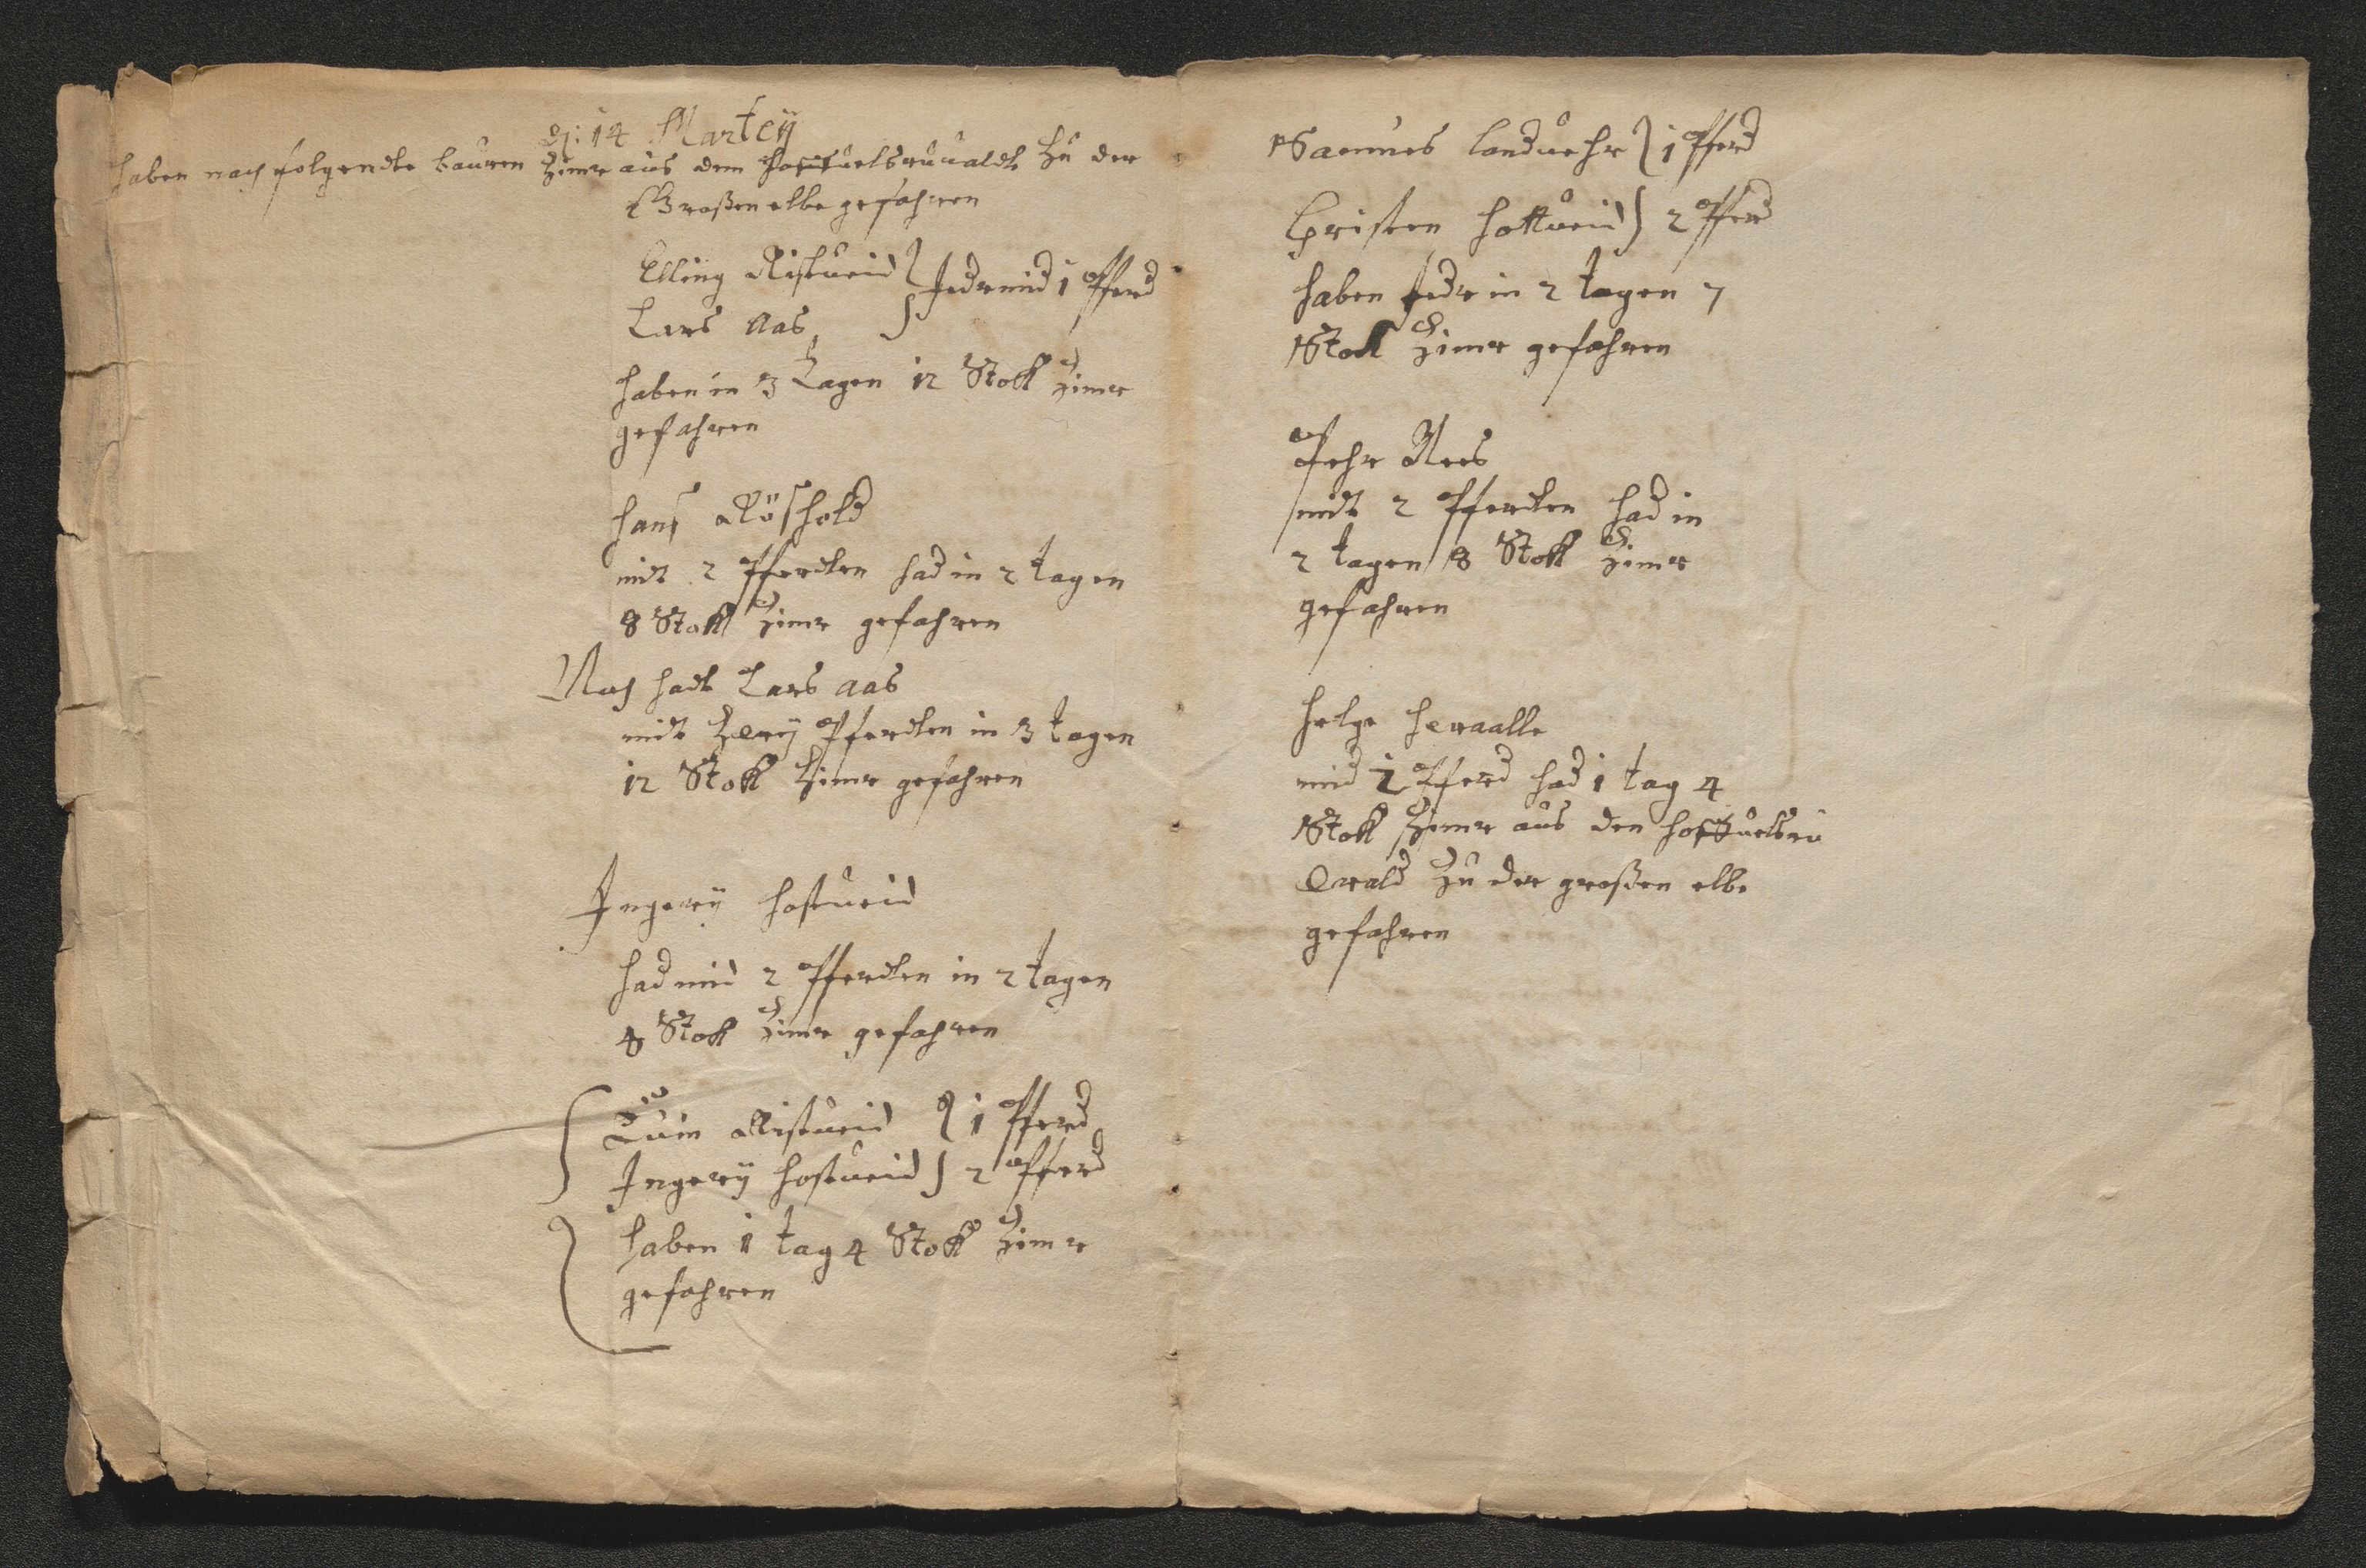 dj: 14 Martey
haben nach folgendte bauren Zimr aus dem zu der
Großen elbe gefahren
Elling Ristueid } Jedr mid 1 Pferd
Lars Aas
haben in 3 Tagen 12 Stock Zimr
gefahren
Hans Röshold
mit 2 Pferdten had in 2 tagen
8 Stock Zimr gefahren
Noch hadt Lars Aas
mit Pferdten in 3 tagen
12 Stock Zimr gefahren
Ingerij Hostueid
had mid 2 Pferdten in 2 tagen
8 Stock Zimr gefahren
Ristueid } 1 Pferd
Ingerij Hostueid } 2 Pferd
haben 1 tag 4 Stock Zimr
gefahren
Landuehr } 1 Pferd
Christen } 2 Pferd
haben Jedr in 2 tagen 7
Stock Zimr gefahren
Pehr Nees
mit 2 Pferdten had in
2 tagen 8 Stock Zimr
gefahren
Helge Heraalle
mid 1 Pferd had 1 tag 4
Stock Zimr aus den
wald zu der großen elbe
gefahren